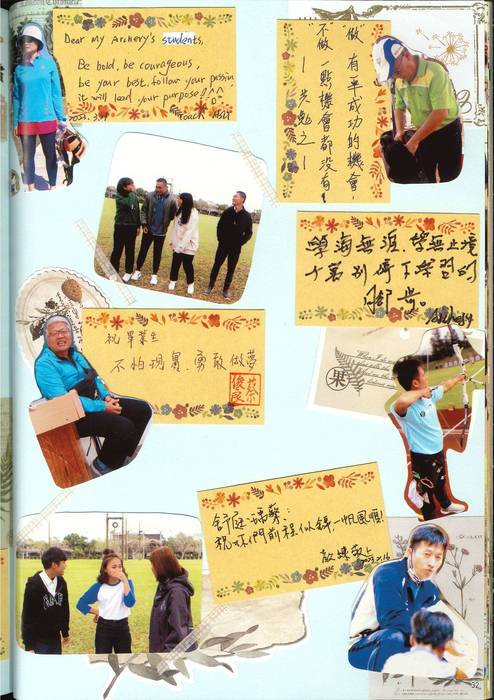 Dear My Archery's students,
Be bold, be courageous,
be your best, follow your passion
it will lead your purpose! ^0^
Coach Hsu
"做"有一半成功的機會,
"不做"一點機會都沒有!
— 共勉之 —
學海無涯、學無止境
千萬別停下學習的
腳步。
祝 畢業生
不怕現實、勇敢做夢
蔡
俊
民
果
祝你們前程似錦,一帆風順!
32